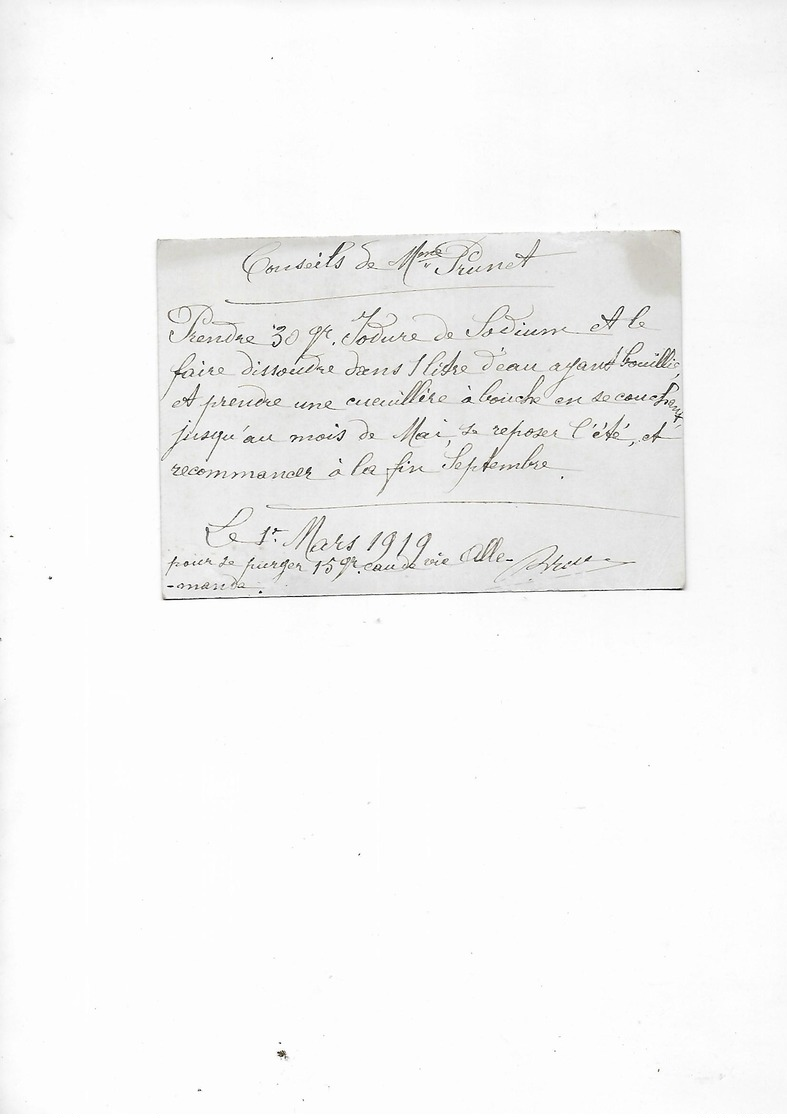 Conseils de Mme Prunet
Prendre 30 gr. Iodure de Sodium et le
faire dissoudre dans 1 litre d'eau ayant bouillie,
et prendre une cueuillère à bouche en se couchant,
jusqu'au mois de Mai, se reposer l'été, et
recommancer à la fin Septembre.
Le 1r Mars 1919
pour se purger 15 gr. eau de vie Alle-
-mande.